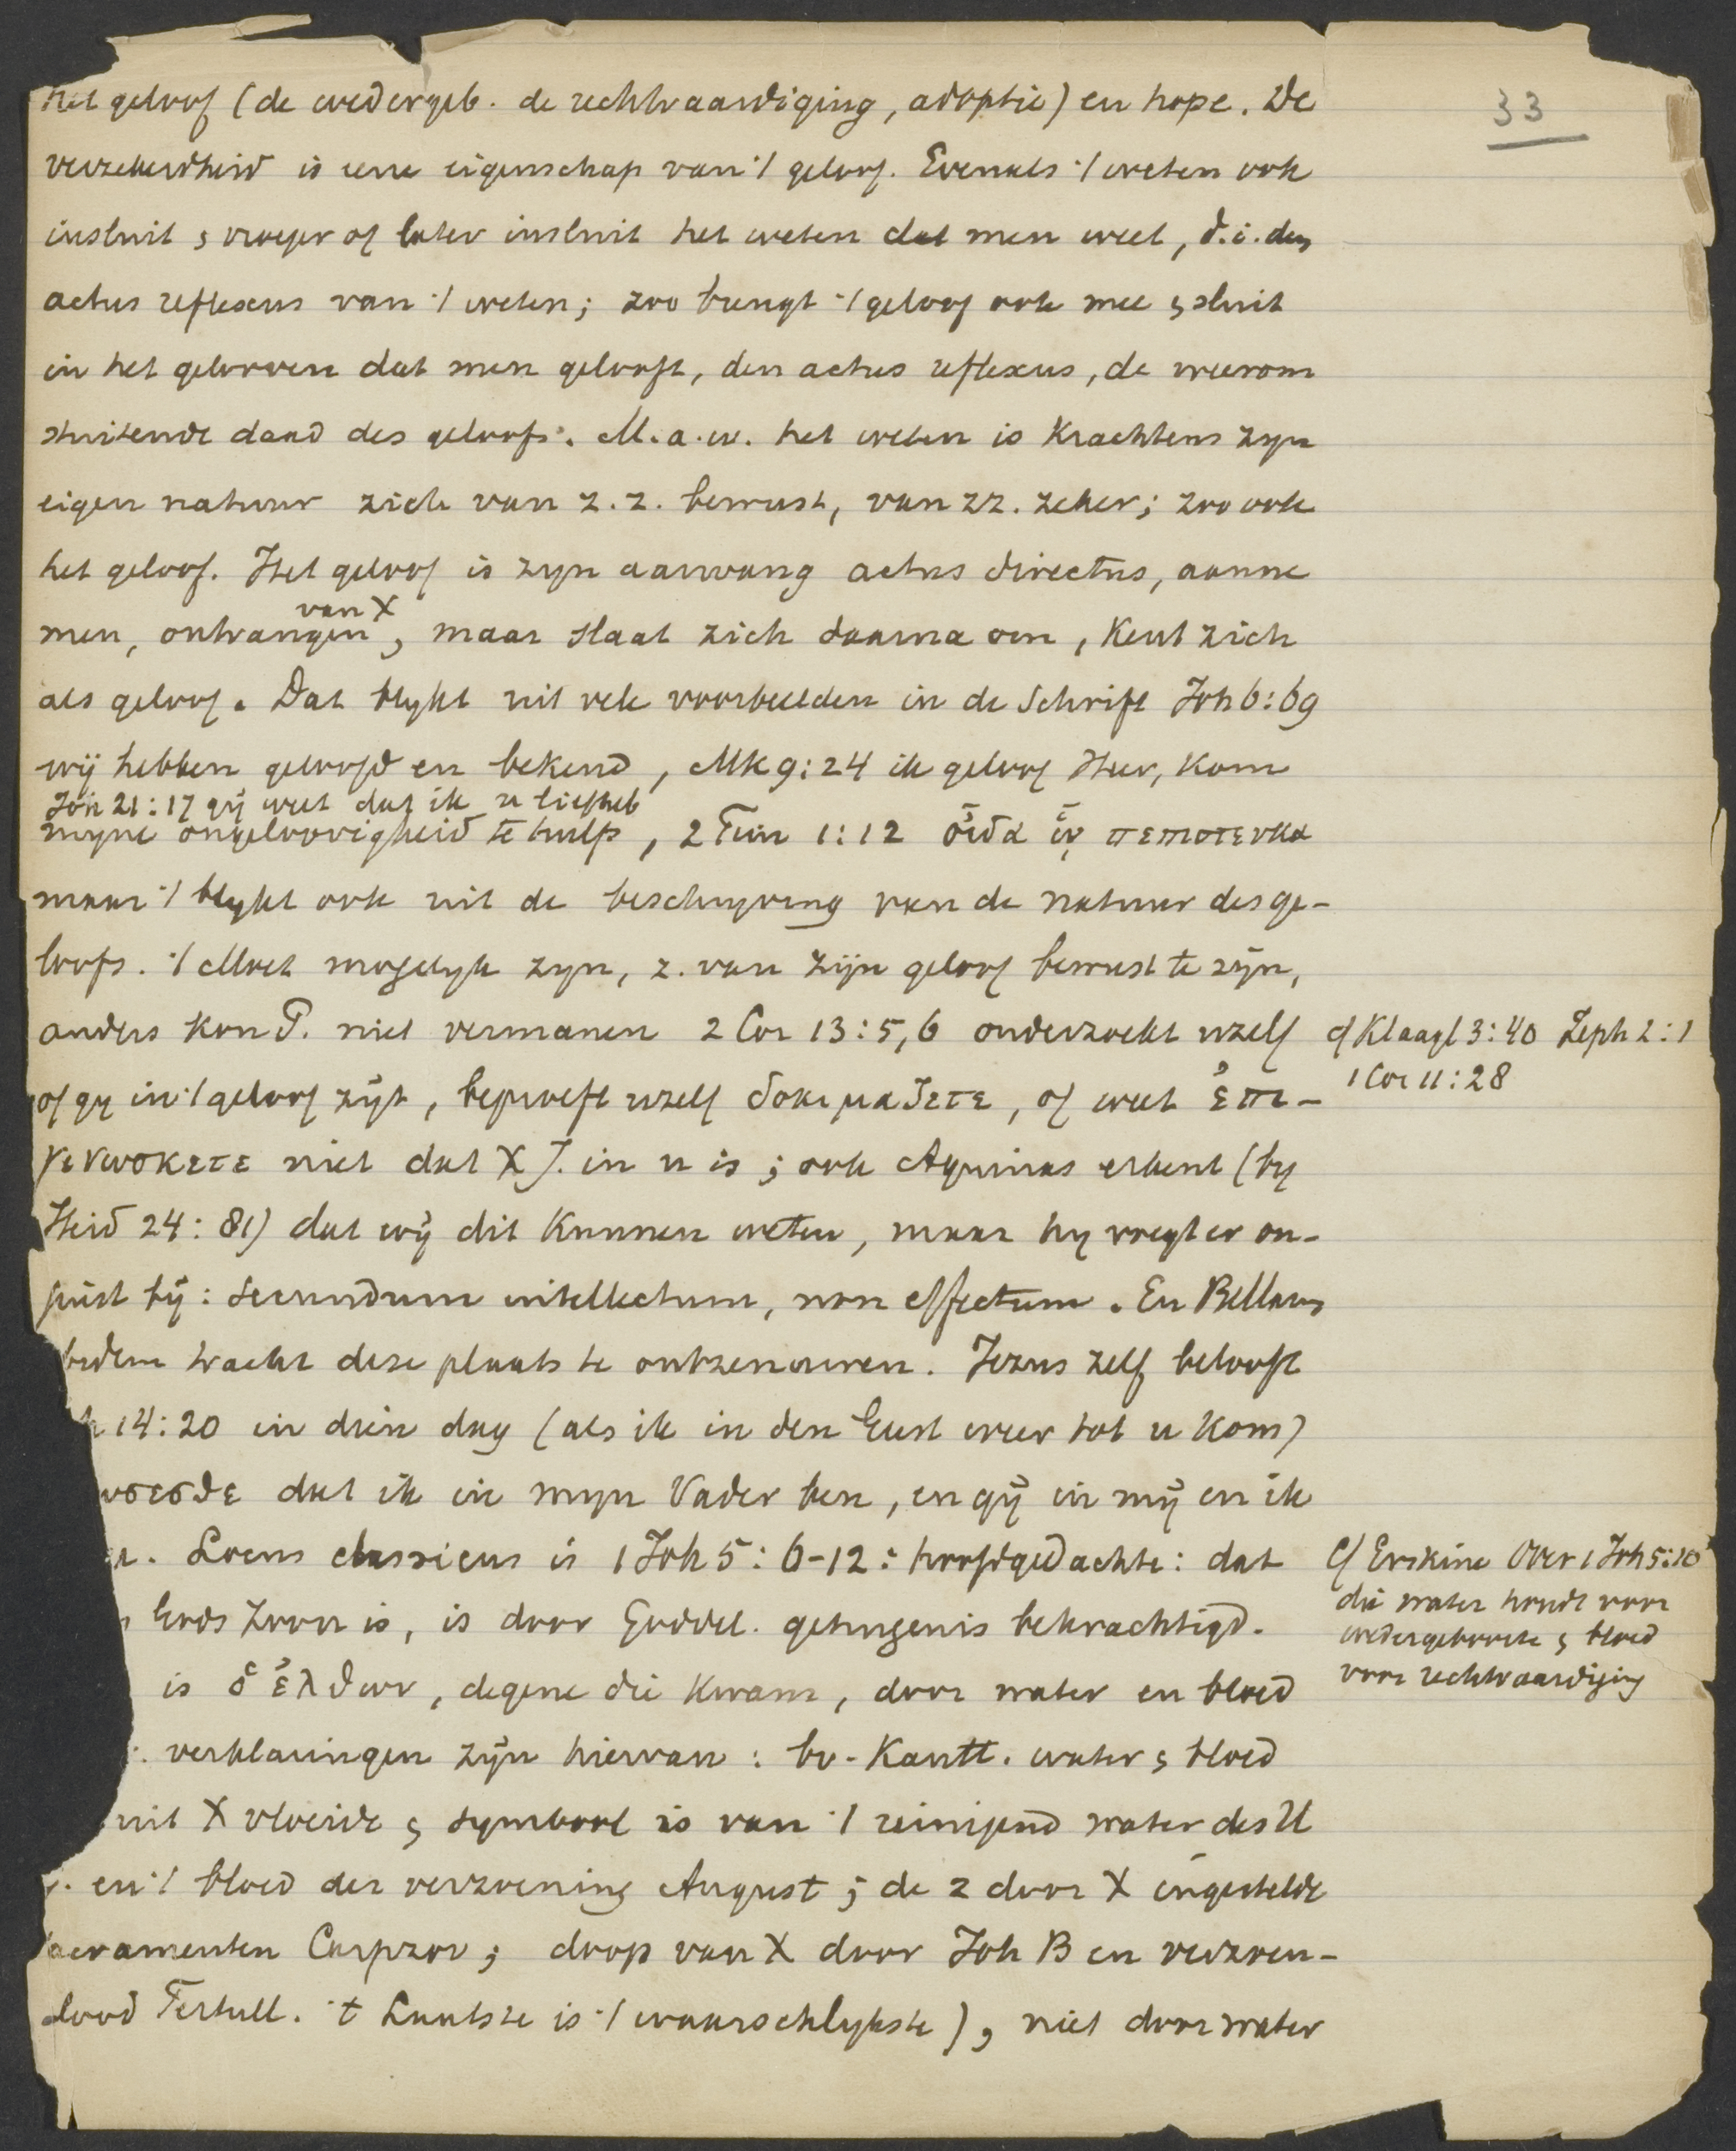 33
het geloof (de wedergeb. de rechtvaardiging, adoptie) en hope. De
verzekerdheid is eene eigenschap van 't geloof. Evenals 't weten ook
insluit & vroeger of later insluit het weten dat men weet, d.i. den
actus reflexus van 't weten; zoo brengt 't geloof ook mee & sluit
in het gelooven dat men gelooft, den actus reflexus, de weerom
stuitende daad des geloofs. M.a.w. het weten is krachtens zyn
eigen natuur zich van z.z. bewust, van zz. zeker; zoo ook
het geloof. Het geloof is zyn aanvang actus directus, aanne
van X
men, ontvangen, maar slaat zich daarna om, kent zich
als geloof. Dat blykt uit vele voorbeelden in de Schrift Joh 6:69
wij hebben geloofd en bekend, Mk 9:24 ik geloof Heer, kom
Joh 21:17 gij weet dat ik u liefheb
myne ongeloovigheid te hulp, 2 Tim 1:12 οἶδα ᾧ πεπιστευκα
maar 't blykt ook uit de beschryving van de natuur des ge-
loofs. 't Moet mogelyk zyn, z. van zijn geloof bewust te zijn,
anders kon P. niet vermanen 2 Cor 13:5,6 onderzoekt uzelf
cf Klaagl 3:40 Zeph 2:1
1 Cor 11:28
of gy in 't geloof zijt, beproeft uzelf δοκιμαζετε, of weet ἐπι-
γινωσκετε niet dat X J. in u is; ook Aquinas erkent (by
Heid 24:81) dat wij dit kunnen weten, maar hy voegt er on-
juist bij: secundum intellectum, non effectum. En Bellarm
tracht deze plaats te ontzenuwen. Jezus zelf belooft
14:20 in dien dag (als ik in den Geest weer tot u kom)
ωσεσθε dat ik in myn Vader ben, en gij in mij en ik
u. Locus classicus is 1 Joh 5:6-12: hoofdgedachte: dat
Cf Erskine Over 1 Joh 5:10
die water houdt voor
wedergeboorte & bloed
voor rechtvaardiging
Gods Zoon is, is door Goddel. getuigenis bekrachtigd.
is ὁ ἐλθων, degene die kwam, door water en bloed
verklaringen zijn hiervan: bv. Kantt. water & bloed
uit X vloeide & symbool is van 't reinigend water des H
. en 't bloed der verzoening August; de 2 door X ingestelde
sacramenten Carpzov; doop van X door Joh B en verzoen-
dood Tertull. 't Laatste is 't waarschlykste), niet door water